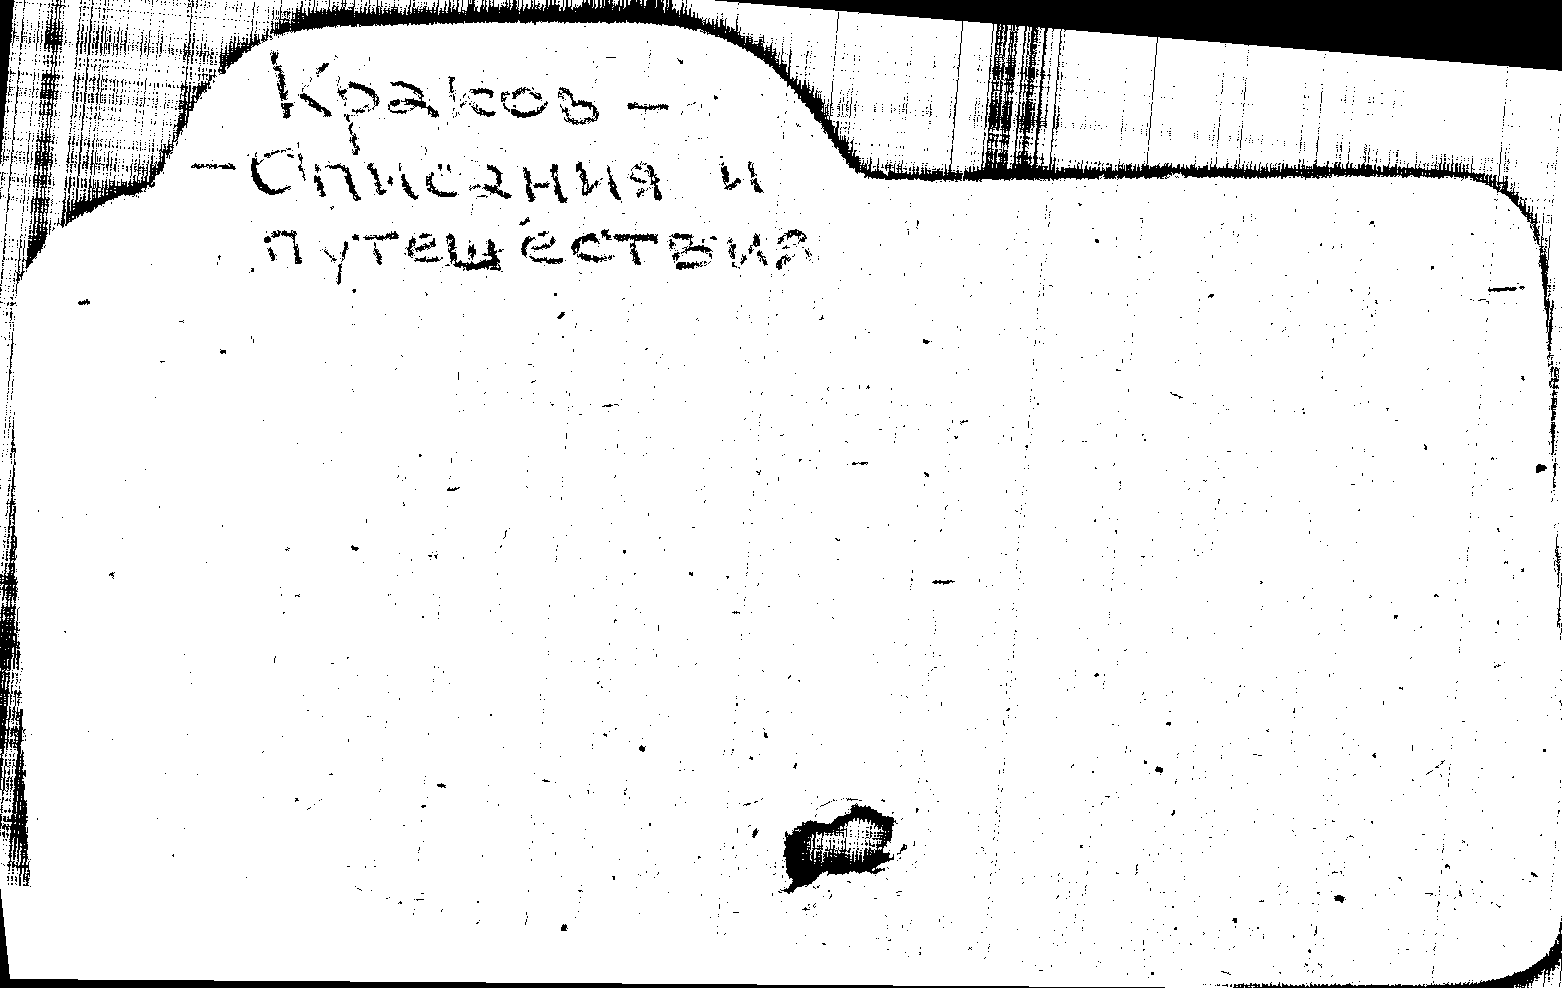 Краков –
– Описания и
путешествия